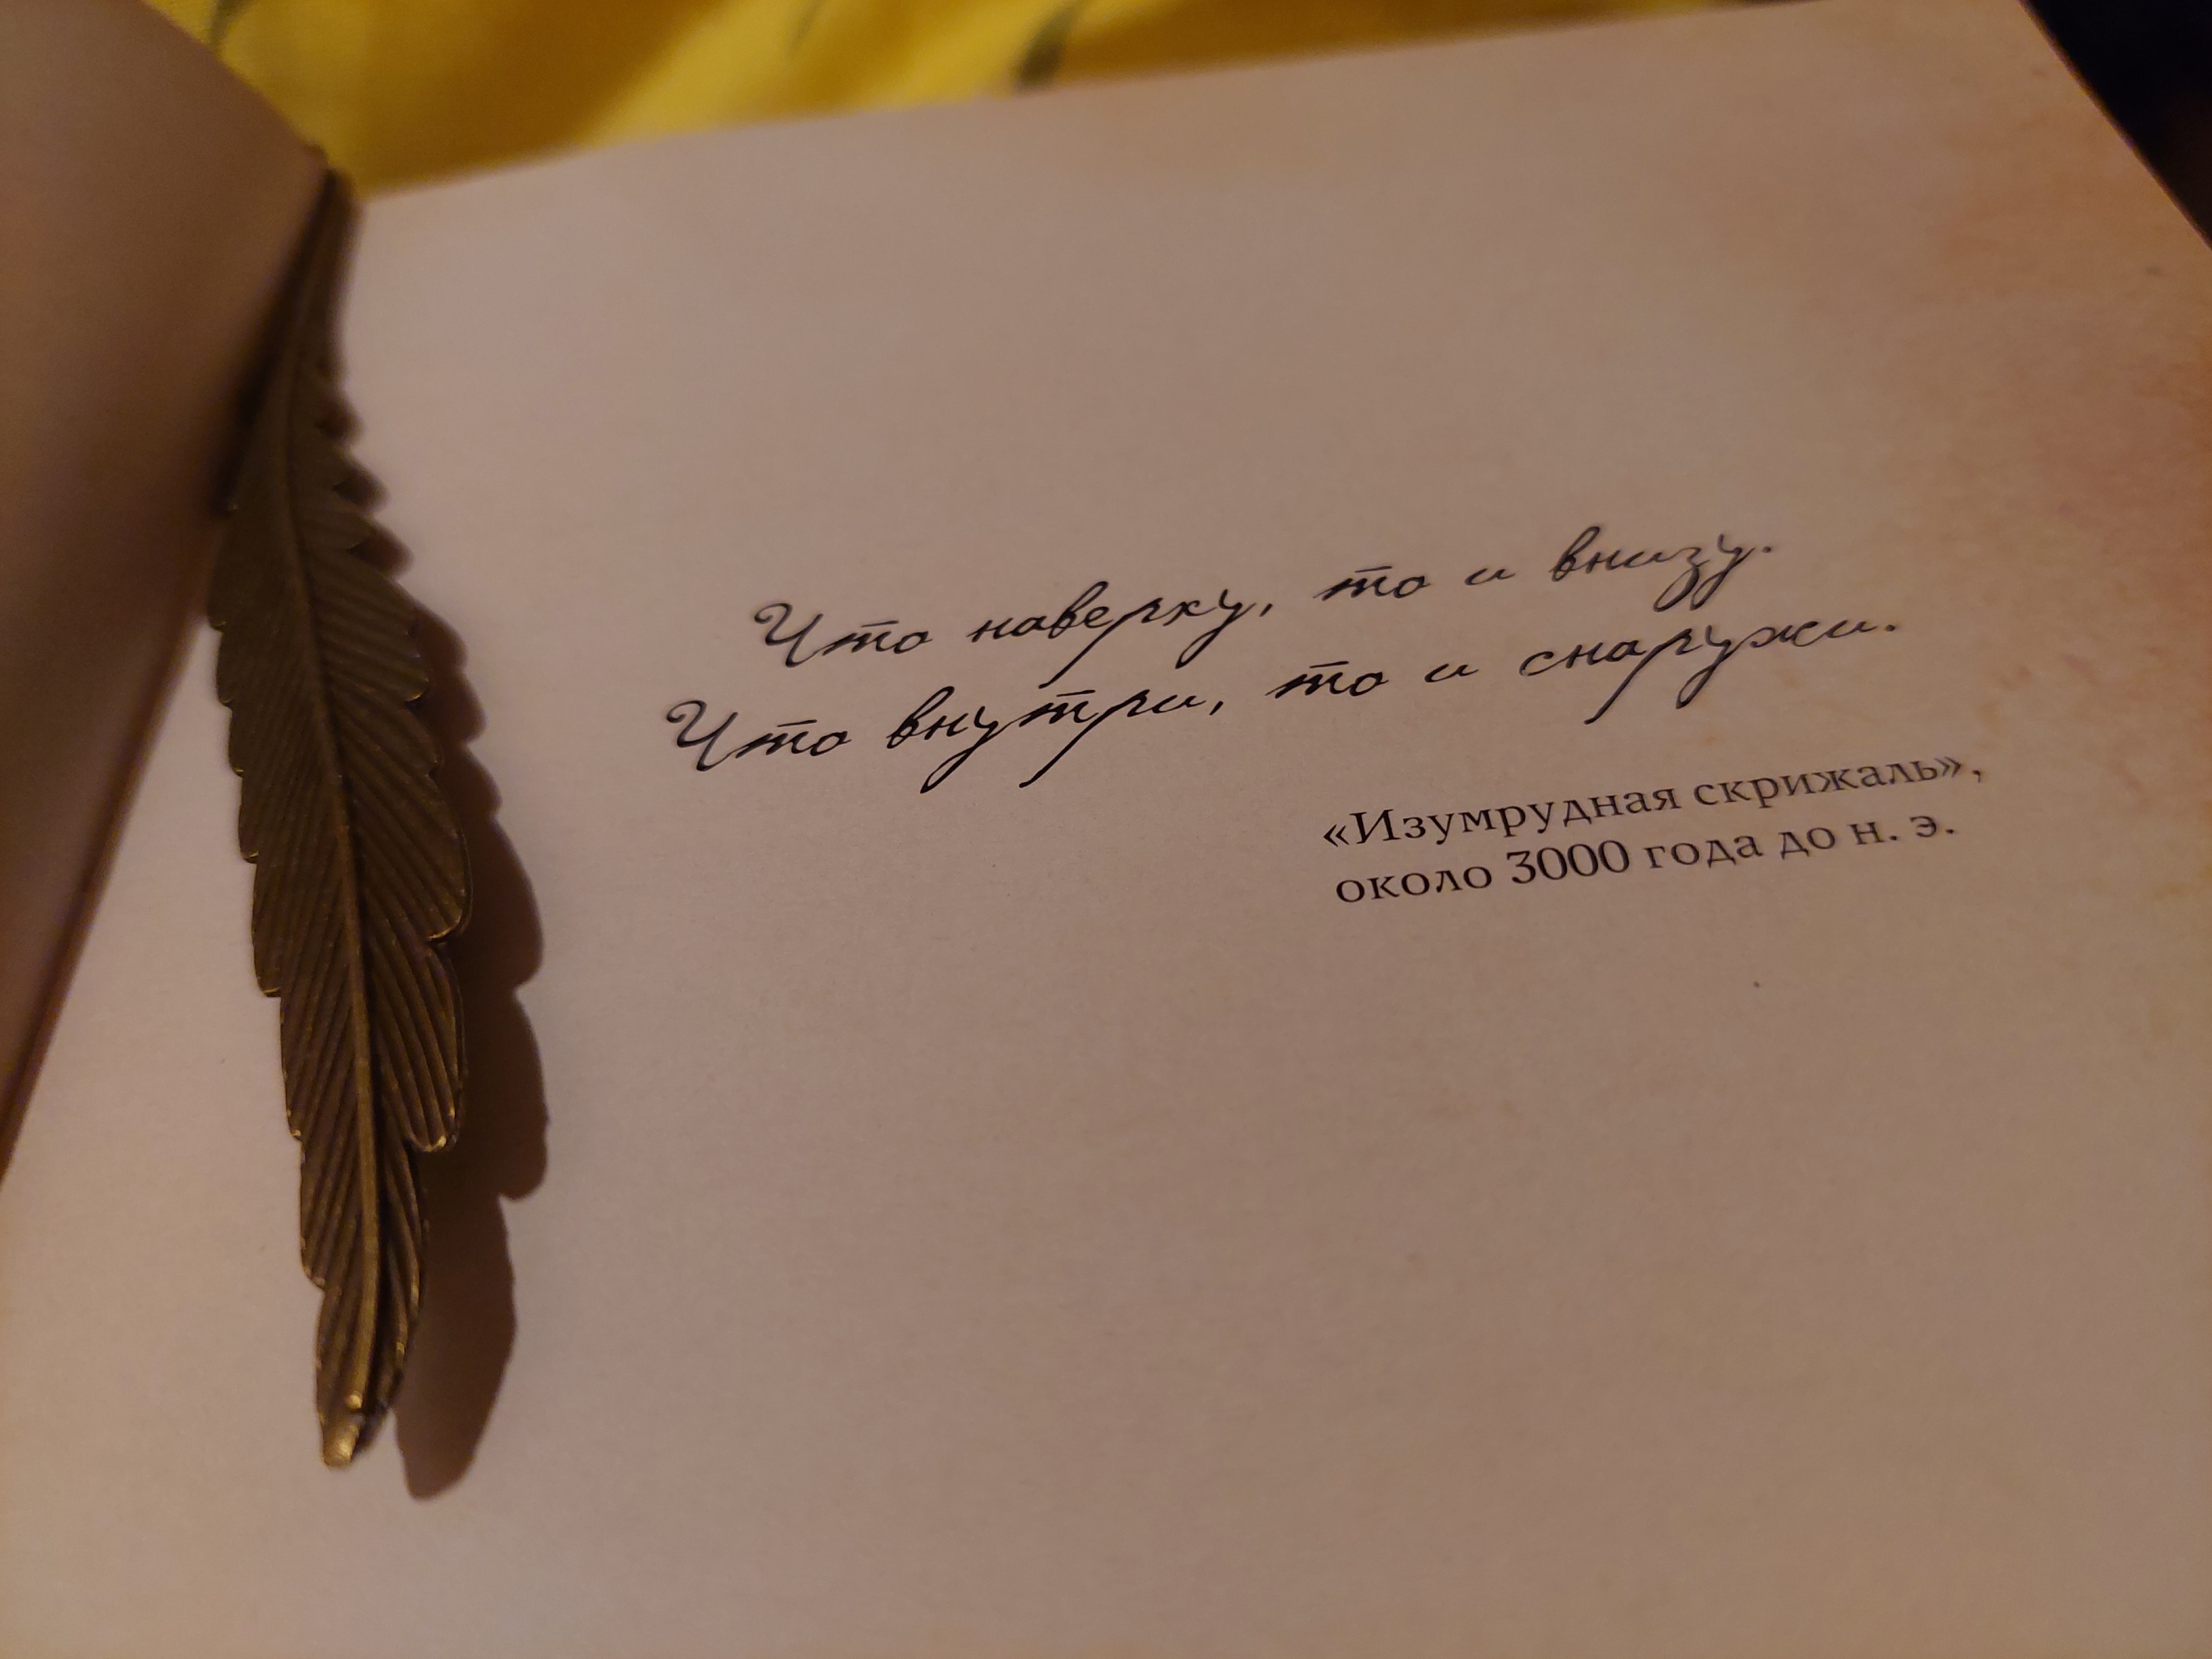 Что наверху, то и внизу.
Что внутри, то и снаружи.
«Изумрудная скрижаль»,
около 3000 года до н. э.